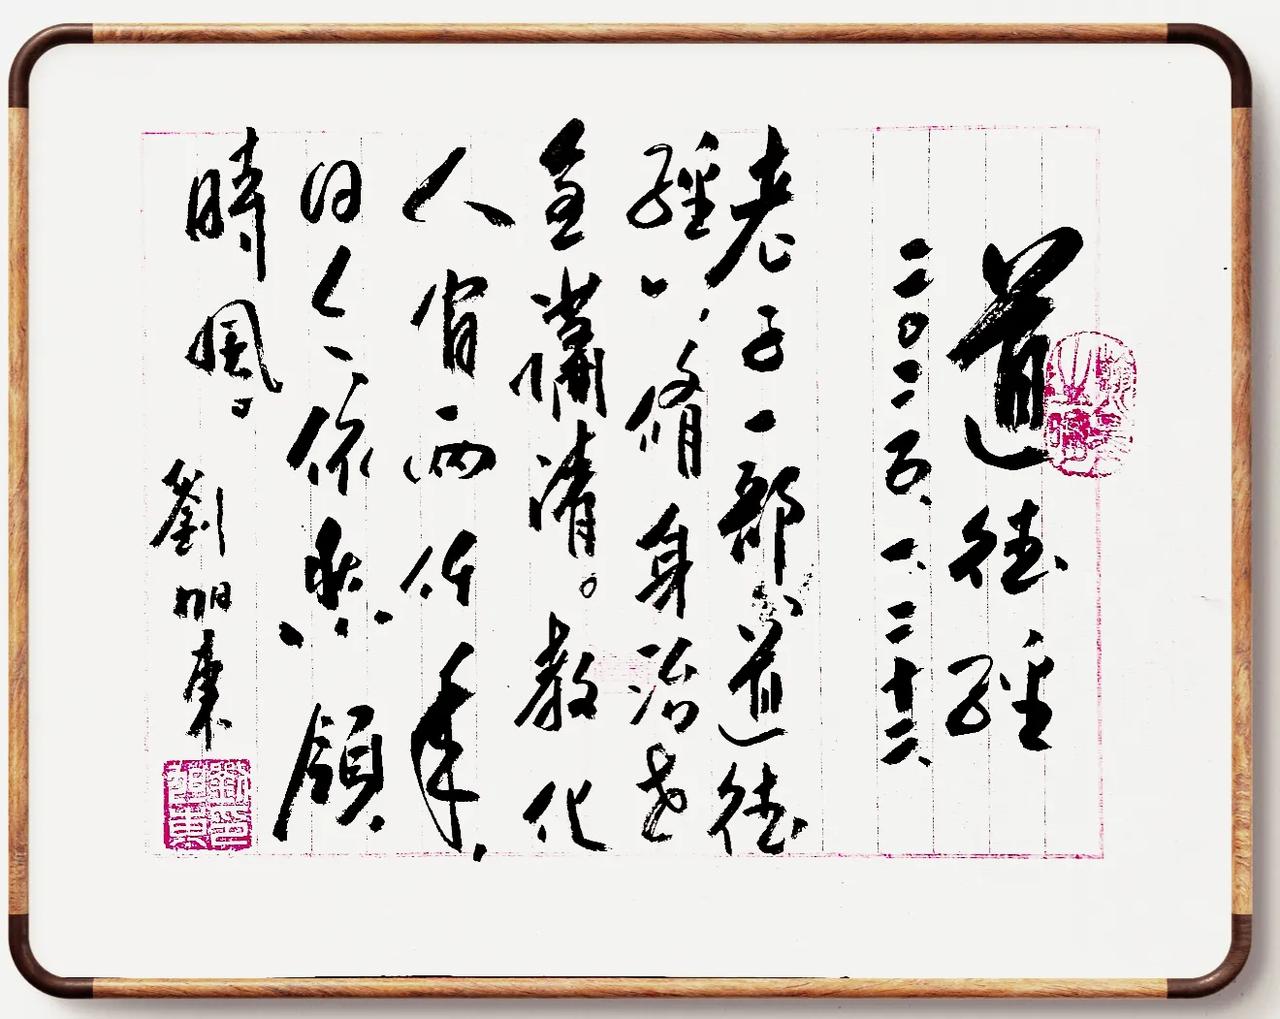 道德經
二〇二五、一、二十二
老子一部《道德
經》,修身治世
至瀟清。教化
人 兩仟年,
日久依然領
時風。
劉旭東